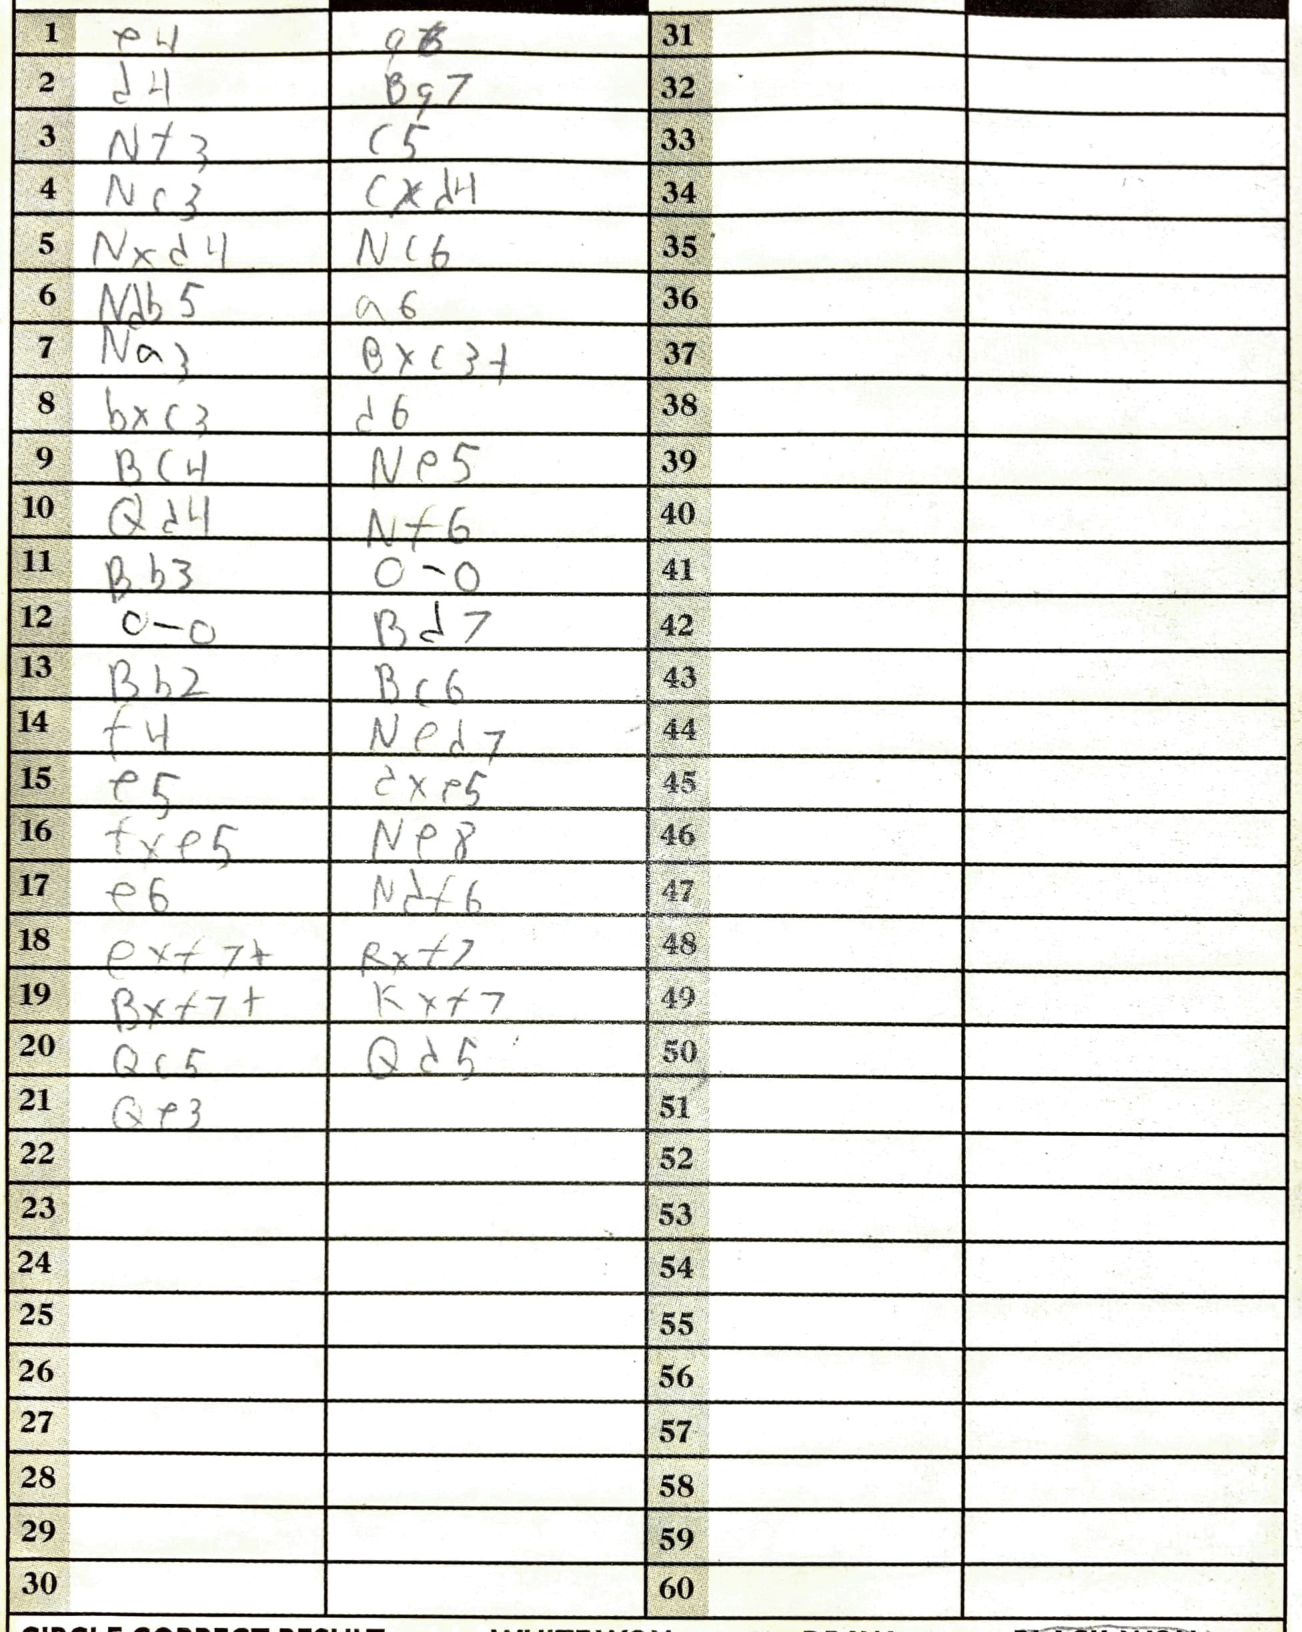 1 e4 g6 31
2 d4 Bg7 32
3 Nf3 c5 33
4 Nc3 cxd4 34
5 Nxd4 Nc6 35
6 Ndb5 a6 36
7 Na3 Bxc3+ 37
8 bxc3 d6 38
9 Bc4 Ne5 39
10 Qd4 Nf6 40
11 Bb3 0-0 41
12 0-0 Bd7 42
13 Bb2 Bc6 43
14 f4 Ned7 44
15 e5 dxe5 45
16 fxe5 Ne8 46
17 e6 Ndf6 47
18 exf7+ Rxf7 48
19 Bxf7+ Kxf7 49
20 Qc5 Qd5 50
21 Qe3 51
22 52
23 53
24 54
25 55
26 56
27 57
28 58
29 59
30 60
CIRCLE CORRECT RESULT WHITE WON DRAW BLACK WON